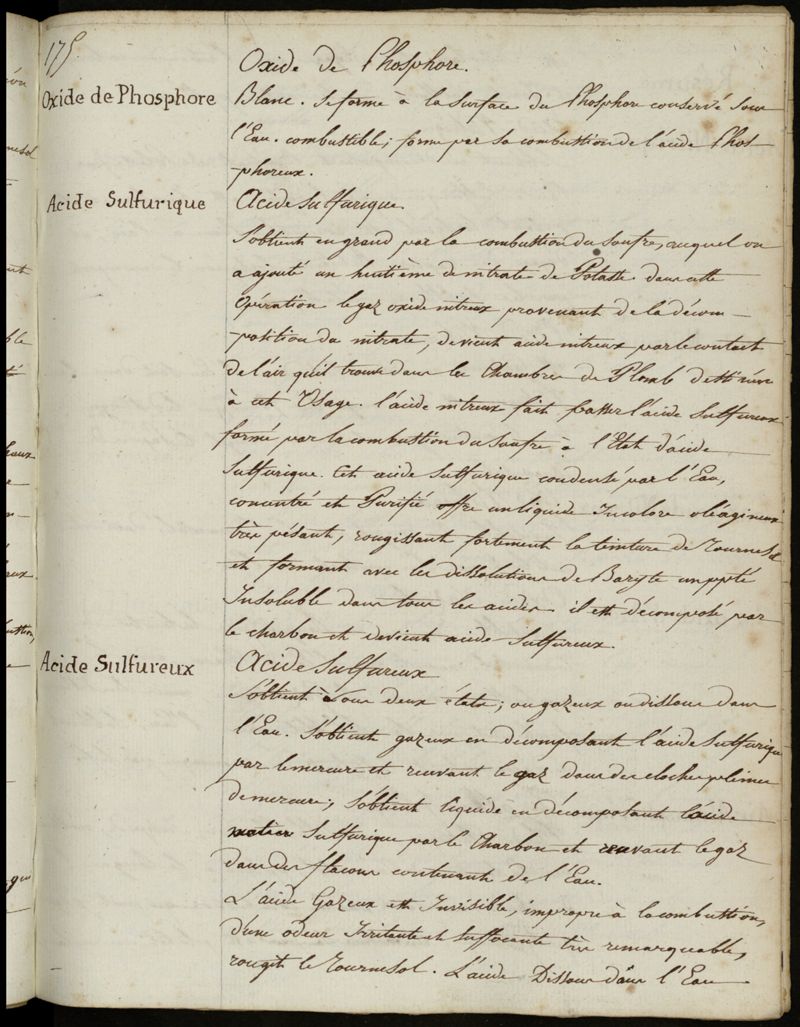 175
Oxide de Phosphore.
Oxide de Phosphore
Blanc. Se forme à la surface du Phosphore conservé sous
l'Eau. combustible; forme par sa combustion de l'acide Phos-
-phoreux.
Acide Sulfurique
Acide Sulfurique
S'obtient en grand par la combustion du soufre, auquel on
a ajouté un huitième de nitrate de Potasse dans cette
opération le gaz oxide nitreux provenant de la décom-
-position du nitrate, devient acide nitreux par le contact
de l'air qu'il trouve dans les Chambres de Plomb destinées
à cet Usage. l'acide nitreux fait passer l'acide Sulfureux
formé par la combustion du Soufre à l'Etat d'acide
Sulfurique. Cet acide Sulfurique condensé par l'Eau,
concentré et Purifié offre un liquide Incolore oléagineux
très pésant, rougissant fortement la teinture de Tournesol
et formant avec les dissolutions de Baryte un ppté
Insoluble dans tous les acides il est décomposé par
le charbon et devient acide Sulfureux.
Acide Sulfureux
Acide Sulfureux
S'obtient sous deux états; ou gazeux ou dissous dans
l'Eau. S'obtient gazeux en décomposant l'acide Sulfurique
par le mercure et recevant le gaz dans des cloches pleines
de mercure; S'obtient liquide en décomposant l'acide
Sulfurique par le Charbon et recevant le gaz
dans des flacons contenant de l'Eau.
L'acide Gazeux est Invisible, impropre à la combustion,
d'une odeur Irritante et suffocante très remarquable,
rougit le Tournesol. L'acide Dissous dans l'Eau